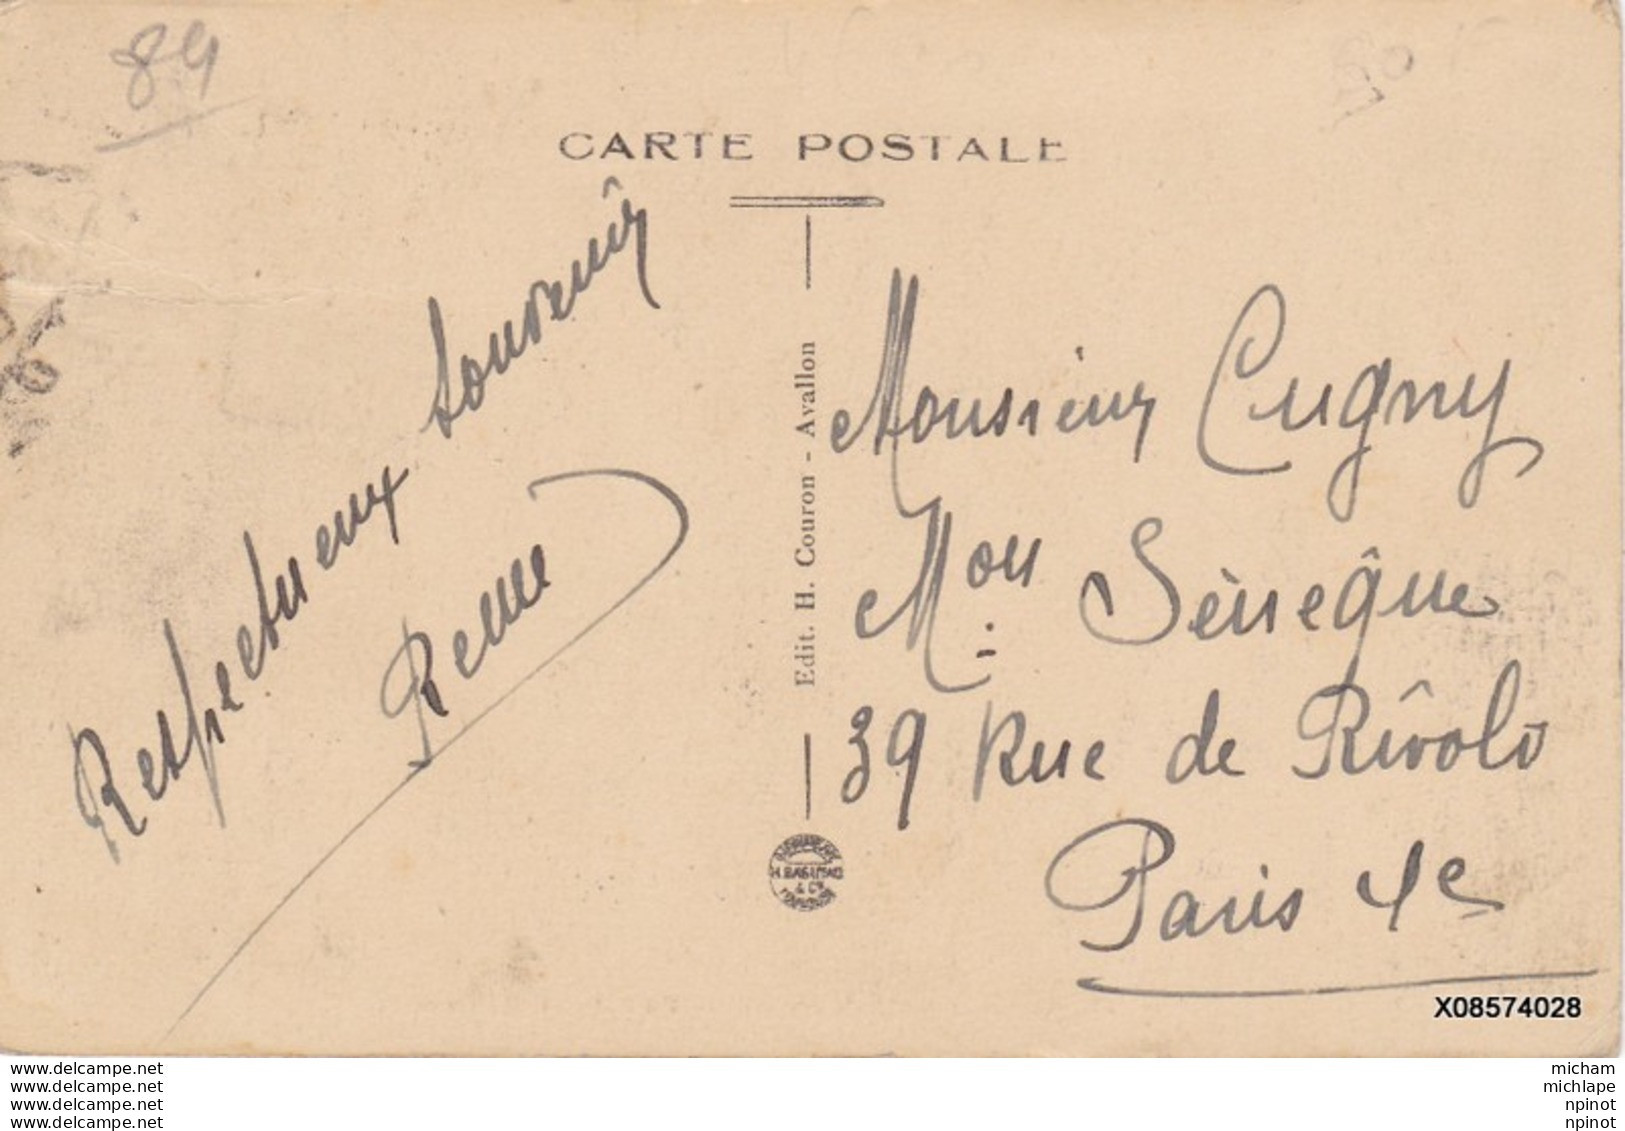 89
CARTE POSTALE
Respectueux souvenir
Edit. H. Couron - Avallon
Monsieur Cugny
Mon Sénèque
39 Rue de Rivoli
Paris 4e
X08574028
www.delcampe.net
www.delcampe.net
www.delcampe.net
www.delcampe.net
micham
michlape
npinot
npinot